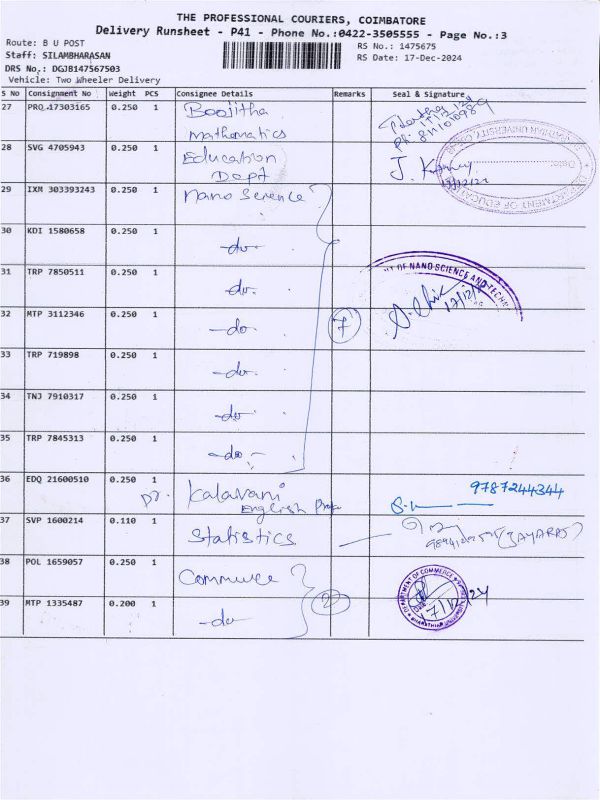 THE PROFESSIONAL COURIERS, COIMBATORE
Delivery Runsheet - P41 - Phone No.:0422-3505555 - Page No.:3
Route: B U POST
RS No.: 1475675
Staff: SILAMBHARASAN
RS Date: 17-Dec-2024
DRS No.: DGJB147567503
Vehicle: Two Wheeler Delivery
S No Consignment No Weight PCS Consignee Details Remarks Seal & Signature
27 PRO 17303165 0.250 1 Boojitha
Mathematics
28 SVG 4705943 0.250 1 Education
Dept
29 IXM 303393243 0.250 1 Nano Science
30 KDI 1580658 0.250 1 -do-
31 TRP 7850511 0.250 1 -do-
32 MTP 3112346 0.250 1 -do- 7
33 TRP 719898 0.250 1 -do-
34 TNJ 7910317 0.250 1 -do-
35 TRP 7845313 0.250 1 -do-
OF NANO SCIENCE AND
17/12/
36 EDQ 21600510 0.250 1 Dr. Kalavani 9787244344
English
37 SVP 1600214 0.110 1 Statistics (JAYARAJ)
38 POL 1659057 0.250 1 Commerce
39 MTP 1335487 0.200 1 -do- 2
DEPARTMENT OF COMMERCE
17/12/24